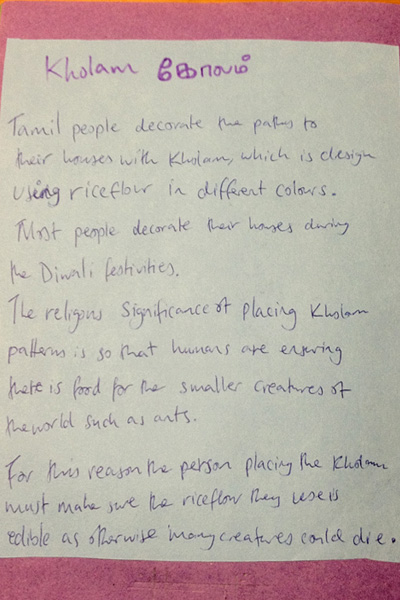 Kholam கோலம்
Tamil people decorate the paths to
their houses with Kholam, which is design
using riceflour in different colours.
Most people decorate their houses during
the Diwali festivities.
The religous Significance of placing Kholam
patterns is so that humans are ensuring
there is food for the smaller creatures of
the world such as ants.
For this reason the person placing the Kholam
must make sure the riceflour they use is
edible as otherwise many creatures could die.